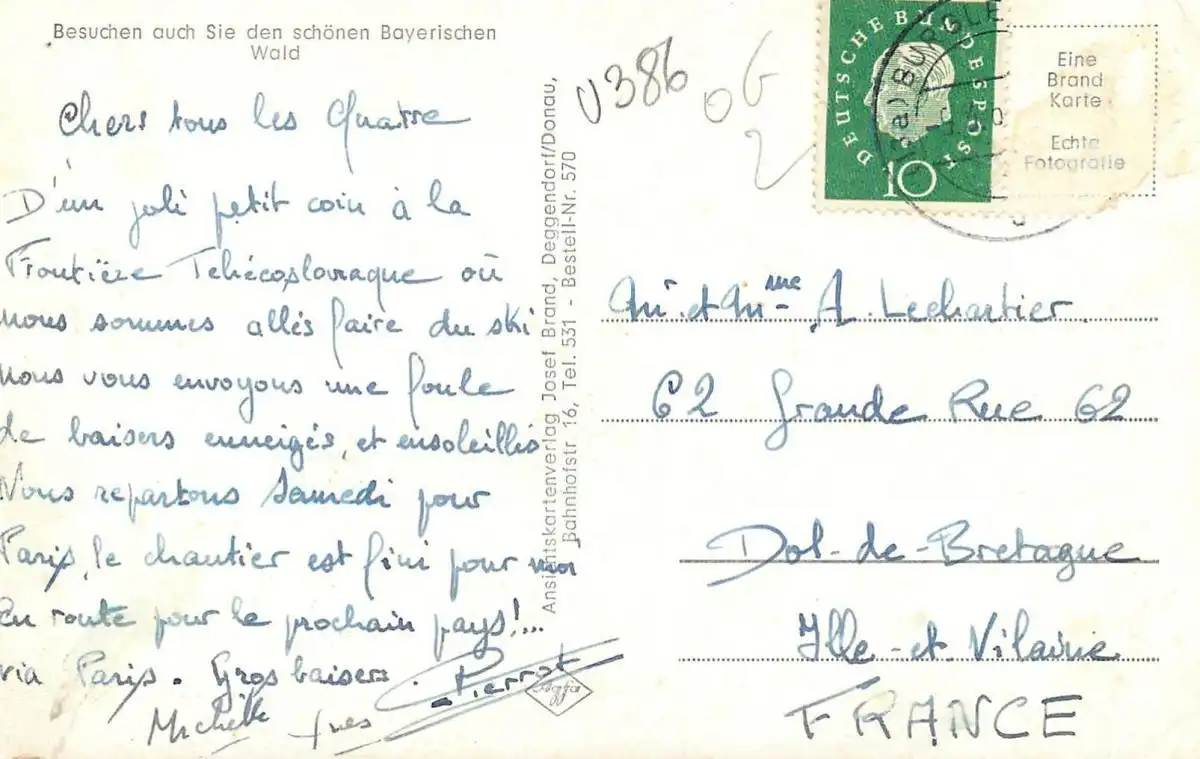 Besuchen auch Sie den schönen Bayerischen
Wald
Chers tous les Quatre
D'un joli petit coin à la
Frontière Tchécoslovaque où
nous sommes allés faire du ski
nous vous envoyons une foule
de baisers enneigés, et ensoleillés
Nous repartons Samedi pour
Paris, le chantier est fini pour moi
En route pour le prochain pays!...
via Paris. Gros baisers
Pierrot
Michèle Yves
Ansichtskartenverlag Josef Brand, Deggendorf/Donau,
Bahnhofstr 16, Tel. 531 - Bestell-Nr. 570
Agfa
U386
06
2
DEUTSCHE BUNDESPOST
10
Eine
Brand
Karte
Echte
Fotografie
Mr et Mme A. Lechartier
62 Grande Rue 62
Dol-de-Bretagne
Ille-et-Vilaine
FRANCE